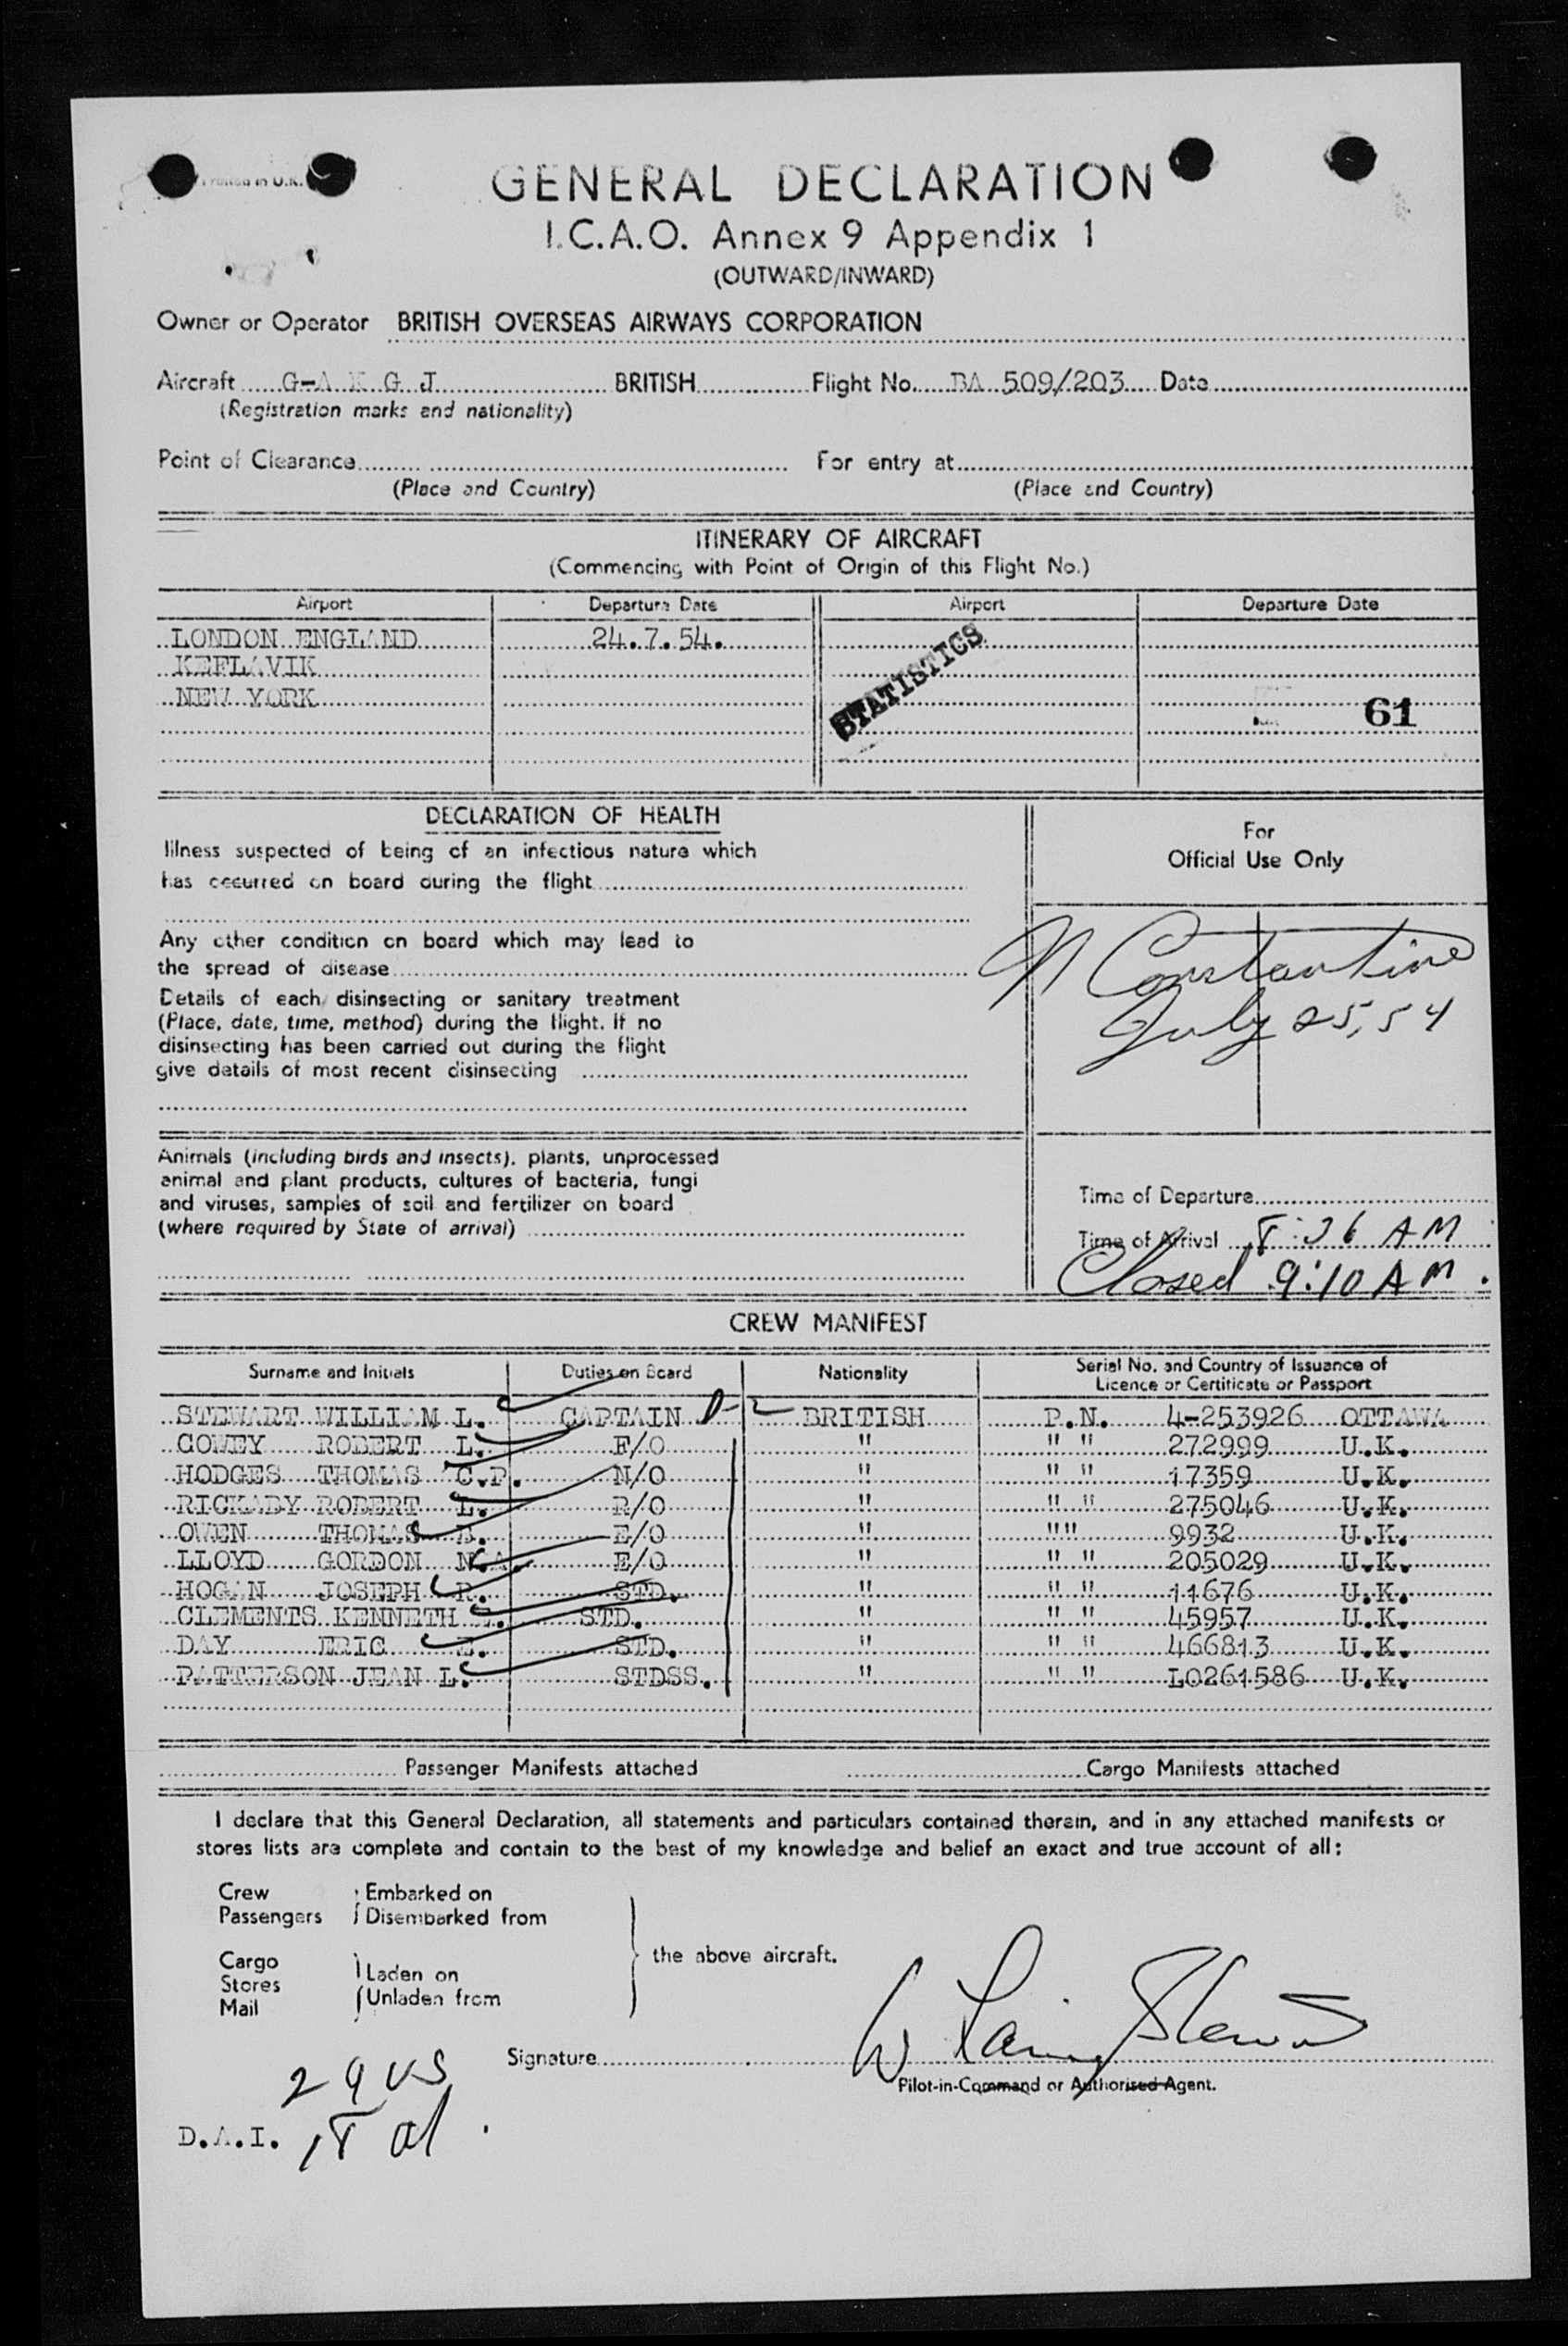 Printed in U.K.
GENERAL DECLARATION
I.C.A.O. Annex 9 Appendix 1
(OUTWARD/INWARD)
Owner or Operator BRITISH OVERSEAS AIRWAYS CORPORATION
Aircraft G-A K G J BRITISH Flight No. BA 509/203 Date
(Registration marks and nationality)
Point of Clearance For entry at
(Place and Country) (Place and Country)
ITINERARY OF AIRCRAFT
(Commencing with Point of Origin of this Flight No.)
Airport Departure Date Airport Departure Date
LONDON ENGLAND 24.7.54.
KEFLAVIK
NEW YORK
STATISTICS
61
DECLARATION OF HEALTH
Illness suspected of being of an infectious nature which
has occurred on board during the flight
Any other condition on board which may lead to
the spread of disease
Details of each disinsecting or sanitary treatment
(Place, date, time, method) during the flight. If no
disinsecting has been carried out during the flight
give details of most recent disinsecting
For
Official Use Only
N Constantine
July 25, 54
Animals (including birds and insects), plants, unprocessed
animal and plant products, cultures of bacteria, fungi
and viruses, samples of soil and fertilizer on board
(where required by State of arrival)
Time of Departure
Time of Arrival 8:36 AM
Closed 9:10 AM.
CREW MANIFEST
Surname and Initials Duties on Board Nationality Serial No. and Country of Issuance of Licence or Certificate or Passport
STEWART WILLIAM L. CAPTAIN D-2 BRITISH P.N. 4-253926 OTTAWA
COWEY ROBERT L. F/O " " " 272999 U.K.
HODGES THOMAS C.P. N/O " " " 17359 U.K.
RICKABY ROBERT L. R/O " " " 275046 U.K.
OWEN THOMAS E/O " " " 9932 U.K.
LLOYD GORDON E/O " " " 205029 U.K.
HOGAN JOSEPH R. STD. " " " 11676 U.K.
CLEMENTS KENNETH STD. " " " 45957 U.K.
DAY ERIC STD. " " " 466813 U.K.
PATTERSON JEAN L. STDSS. " " " LO261586 U.K.
Passenger Manifests attached Cargo Manifests attached
I declare that this General Declaration, all statements and particulars contained therein, and in any attached manifests or
stores lists are complete and contain to the best of my knowledge and belief an exact and true account of all:
Crew Embarked on
Passengers Disembarked from
the above aircraft.
Cargo
Stores Laden on
Mail Unladen from
Signature W Laing Stewart
Pilot-in-Command or Authorised Agent.
29 US
D.A.I. 18 al